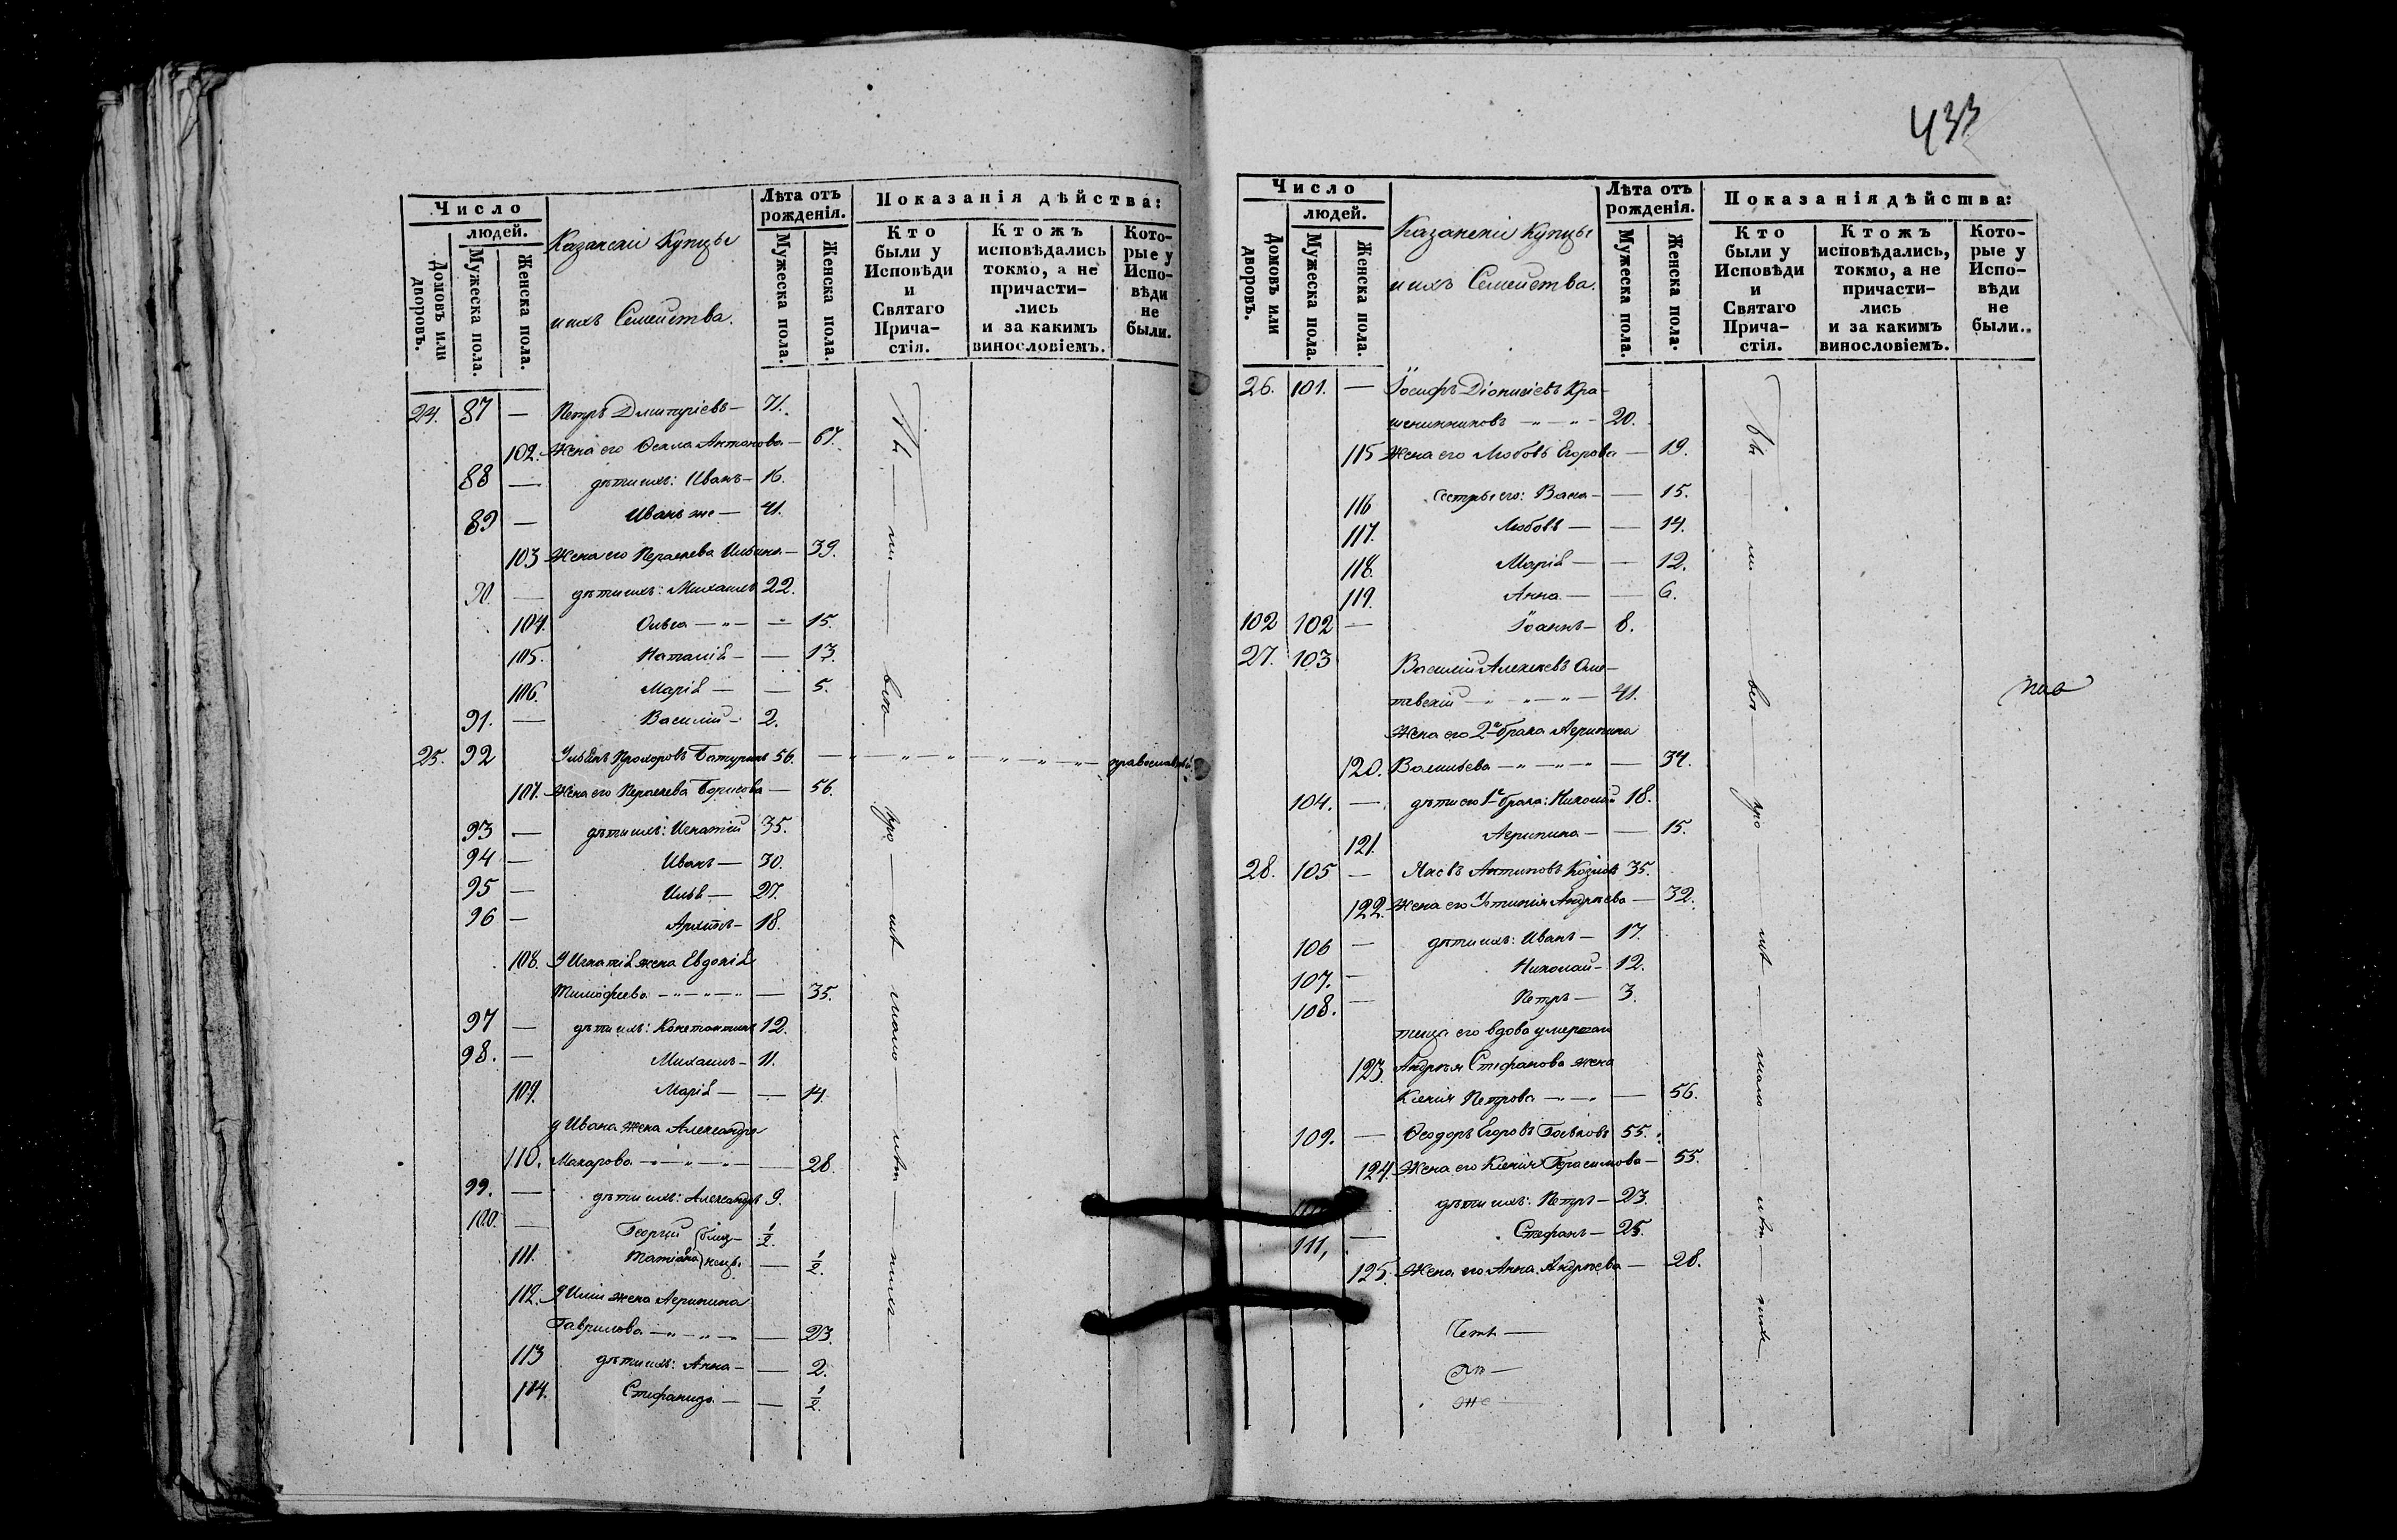 433
Число
людей.
Домовъ или дворовъ.
Мужеска пола.
Женска пола.
Казанскіи Купцы
и ихъ Семейства.
Лѣта отъ рожденія.
Мужеска пола.
Женска пола.
Показанія дѣйства:
Кто были у Исповѣди и Святаго Прича-стія.
Ктожъ исповѣдались токмо, а не причасти-лись и за какимъ винословіемъ.
Кото-рые у Испо-вѣди не были.
24. 87 — Петръ Дмитріевъ — 71.
102. Жена его Фекла Антонова — 67.
88 — дѣти ихъ: Иванъ — 16.
89 — Иванъ же — 41.
103 Жена его Параскева Ильина — 39.
90. — дѣти ихъ: Михаилъ 22.
104. Ольга — „ — — 15.
105. Наталія — — 13.
106. Марія — — 5.
91. — Василій — 2.
25. 92 Ульянъ Прохоровъ Батуринъ 56. — „ — „ — „ — „ — „ —
107. Жена его Параскева Борисова — 56.
93 — дѣти ихъ: Игнатій 35.
94 — Иванъ — 30.
95 — Илья — 27.
96 — Архипъ — 18.
108. У Игнатія жена Евдокія
Тимофеева — „ — „ — „ — 35.
97 — дѣти ихъ: Константинъ 12.
98. — Михаилъ — 11.
109. Марія — — 14.
у Ивана жена Александра
110. Макарова — „ — „ — „ — — 28.
99. — дѣти ихъ: Александръ 9.
100. — Георгій (близ- 1/2.
111. Татіана) нецы — 1/2.
112. У Ильи жена Агрипина
Гаврилова — „ — „ — — 23.
113 дѣти ихъ: Анна — — 2.
114. Стефанида — — 1/2.
Число
людей.
Домовъ или дворовъ.
Мужеска пола.
Женска пола.
Казанскіи Купцы
и ихъ Семейства.
Лѣта отъ рожденія.
Мужеска пола.
Женска пола.
Показанія дѣйства:
Кто были у Исповѣди и Святаго Прича-стія.
Ктожъ исповѣдались, токмо, а не причасти-лись и за какимъ винословіемъ.
Кото-рые у Испо-вѣди не были.
26. 101. — Іосифъ Діонисіевъ Кра-
шенинниковъ — „ — „ — 20.
115 Жена его Любовь Егорова — 19.
116 Сестры его: — — 15.
117. Любовь — — 14.
118. Марія — — 12.
119. Анна — — 6.
102 102 — Іоаннъ — 8.
27. 103 Василій Алексѣевъ
— „ — „ — „ — 41.
Жена его 2го брака Агрипина
120. Васильева — „ — „ — „ — 34.
104. — дѣти его 1го брака: Николай 18.
121. Агрипина — — 15.
28. 105 — Антиповъ Козловъ 35.
122. Жена его Устинія Андрѣева — 32.
106 — дѣти ихъ: Иванъ — 17.
107. — Николай — 12.
108. — Петръ — 3.
теща его вдова умершаго
123. Андрѣя Стефанова жена
Ксенія Петрова — „ — „ — 56.
109. — Ѳеодоръ Егоровъ 55.
124. Жена его Ксенія Герасимова — 55.
дѣти ихъ: Петръ — 23.
111, — Стефанъ — 25.
125. Жена его Анна Андрѣева — 28.